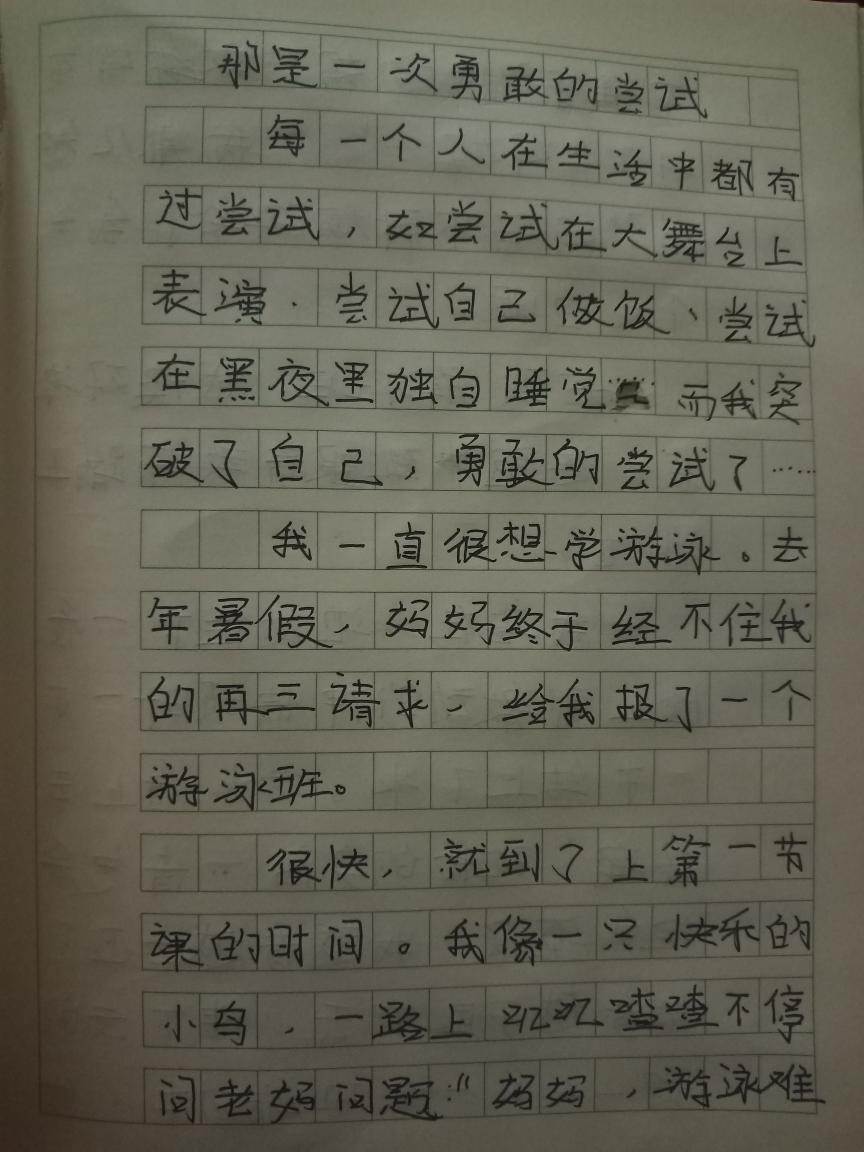 那是一次勇敢的尝试
每一个人在生活中都有
过尝试，如尝试在大舞台上
表演、尝试自己做饭、尝试
在黑夜里独自睡觉……而我突
破了自己，勇敢的尝试了……
我一直很想学游泳。去
年暑假，妈妈终于经不住我
的再三请求，给我报了一个
游泳班。
很快，就到了上第一节
课的时间。我像一只快乐的
小鸟，一路上叽叽喳喳不停
问老妈问题："妈妈，游泳难